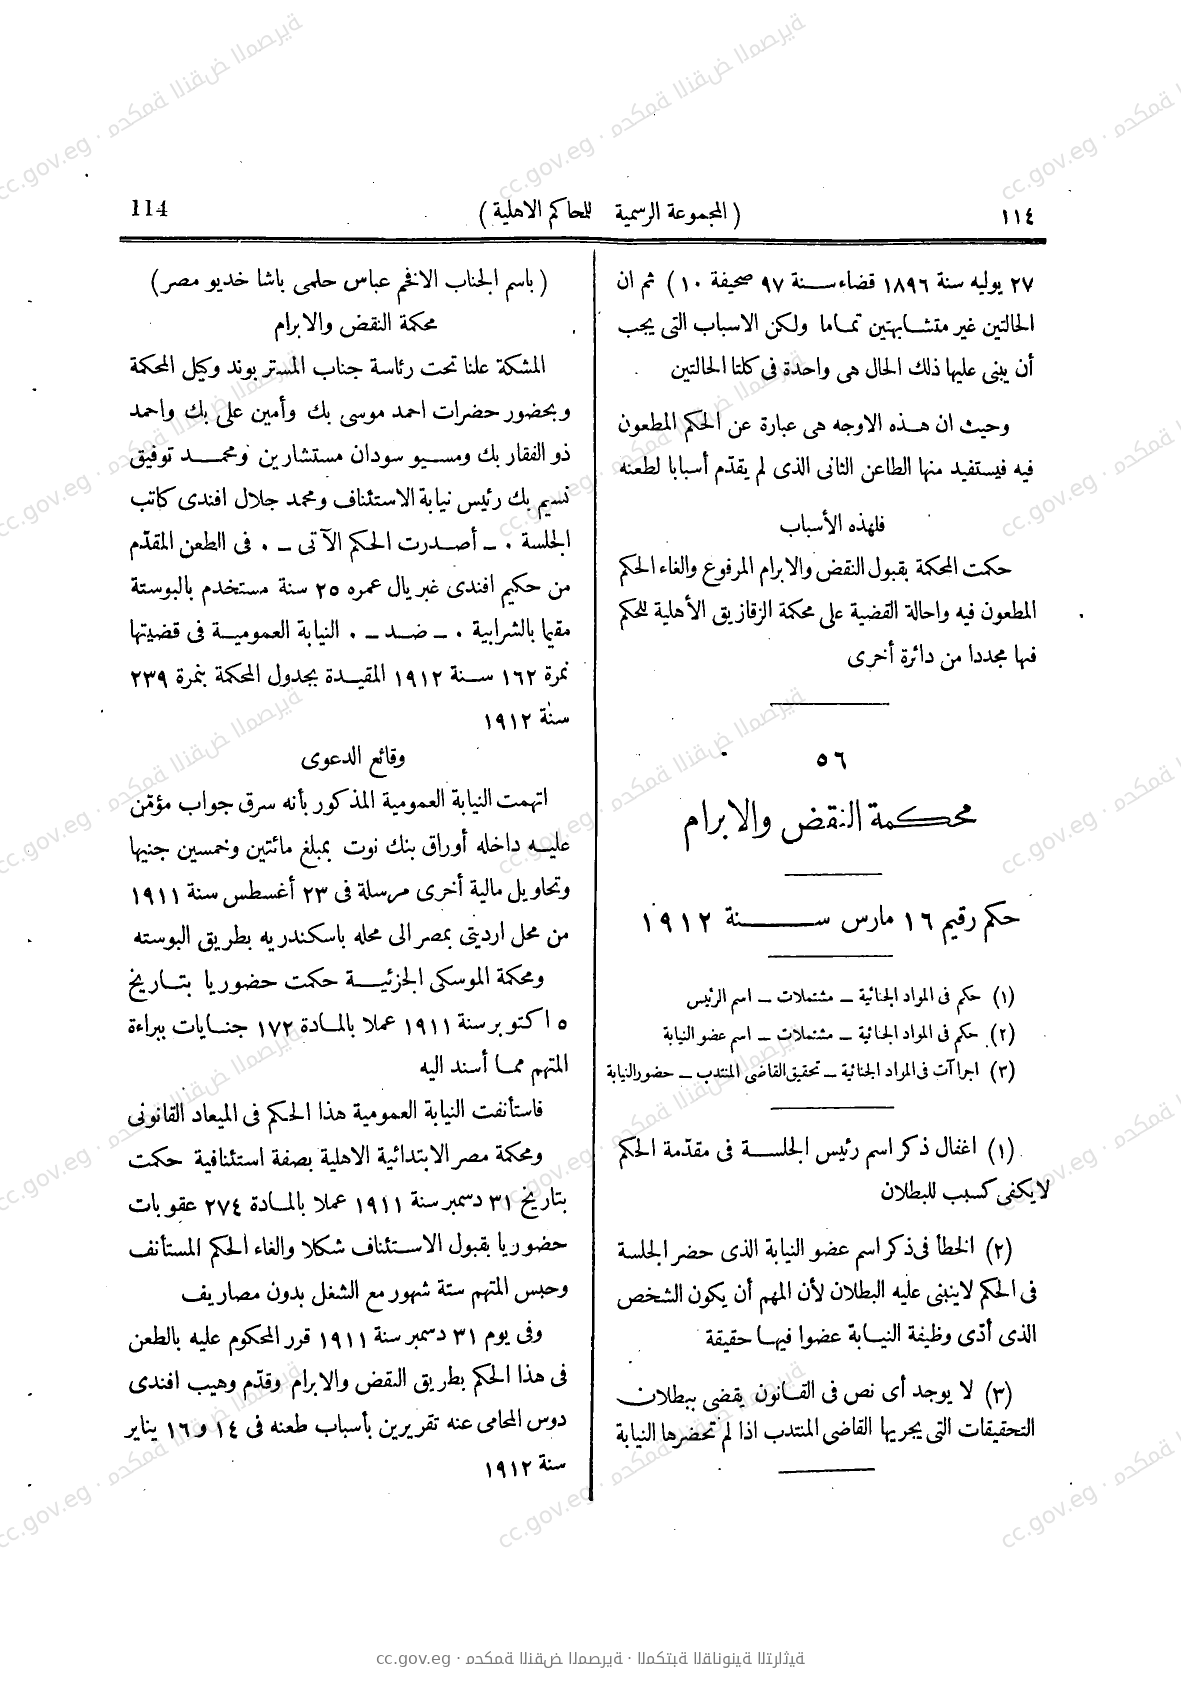 ١١٤
( المجموعة الرسمية للمحاكم الاهلية )
114
٢٧ يوليه سنة ١٨٩٦ قضاء سنة ٩٧ صحيفة ١٠ ) ثم ان
الحالتين غير متشابهتين تماما ولكن الاسباب التى يجب
أن يبنى عليها ذلك الحال هى واحدة فى كلتا الحالتين
وحيث ان هذه الاوجه هى عبارة عن الحكم المطعون
فيه فيستفيد منها الطاعن الثانى الذى لم يقدّم أسبابا لطعنه
فلهذه الأسباب
حكمت المحكمة بقبول النقض والابرام المرفوع والغاء الحكم
المطعون فيه واحالة القضية على محكمة الزقازيق الأهلية للحكم
فيها مجددا من دائرة أخرى
٥٦
محكمة النقض والابرام
حكم رقيم ١٦ مارس سنة ١٩١٢
(١) حكم فى المواد الجنائية – مشتملات – اسم الرئيس
(٢) حكم فى المواد الجنائية – مشتملات – اسم عضو النيابة
(٣) اجراآت فى المراد الجنائية – تحقيق القاضى المنتدب – حضور النيابة
(١) اغفال ذكر اسم رئيس الجلسة فى مقدّمة الحكم
لا يكفى كسبب للبطلان
(٢) الخطأ فى ذكر اسم عضو النيابة الذى حضر الجلسة
فى الحكم لا ينبنى عليه البطلان لأن المهم أن يكون الشخص
الذى أدّى وظيفة النيابة عضوا فيها حقيقة
(٣) لا يوجد أى نص فى القانون يقضى ببطلان
التحقيقات التى يجريها القاضى المنتدب اذا لم تحضرها النيابة
( باسم الجناب الافخم عباس حلمى باشا خديو مصر )
محكمة النقض والابرام
المشكلة علنا تحت رئاسة جناب المستر بوند وكيل المحكمة
وبحضور حضرات احمد موسى بك وأمين على بك واحمد
ذو الفقار بك ومسيو سودان مستشارين ومحمد توفيق
نسيم بك رئيس نيابة الاستئناف ومحمد جلال افندى كاتب
الجلسة ٠ – أصدرت الحكم الآتى – ٠ فى الطعن المقدّم
من حكيم افندى غبريال عمره ٢٥ سنة مستخدم بالبوستة
مقيما بالشرابية ٠ – ضد – ٠ النيابة العمومية فى قضيتها
نمرة ١٦٢ سنة ١٩١٢ المقيدة بجدول المحكمة بنمرة ٢٣٩
سنة ١٩١٢
وقائع الدعوى
اتهمت النيابة العمومية المذكور بأنه سرق جواب مؤمّن
عليه داخله أوراق بنك نوت بمبلغ مائتين وخمسين جنيها
وتحاويل مالية أخرى مرسلة فى ٢٣ أغسطس سنة ١٩١١
من محل ارديتى بمصر الى محله باسكندريه بطريق البوسته
ومحكمة الموسكى الجزئية حكمت حضوريا بتاريخ
٥ اكتوبر سنة ١٩١١ عملا بالمادة ١٧٢ جنايات ببراءة
المتهم مما أسند اليه
فاستأنفت النيابة العمومية هذا الحكم فى الميعاد القانونى
ومحكمة مصر الابتدائية الاهلية بصفة استئنافية حكمت
بتاريخ ٣١ دسمبر سنة ١٩١١ عملا بالمادة ٢٧٤ عقوبات
حضوريا بقبول الاستئناف شكلا والغاء الحكم المستأنف
وحبس المتهم ستة شهور مع الشغل بدون مصاريف
وفى يوم ٣١ دسمبر سنة ١٩١١ قرر المحكوم عليه بالطعن
فى هذا الحكم بطريق النقض والابرام وقدّم وهيب افندى
دوس المحامى عنه تقريرين بأسباب طعنه فى ١٤ و ١٦ يناير
سنة ١٩١٢
cc.gov.eg · محكمة النقض المصرية · المكتبة القانونية التراثية